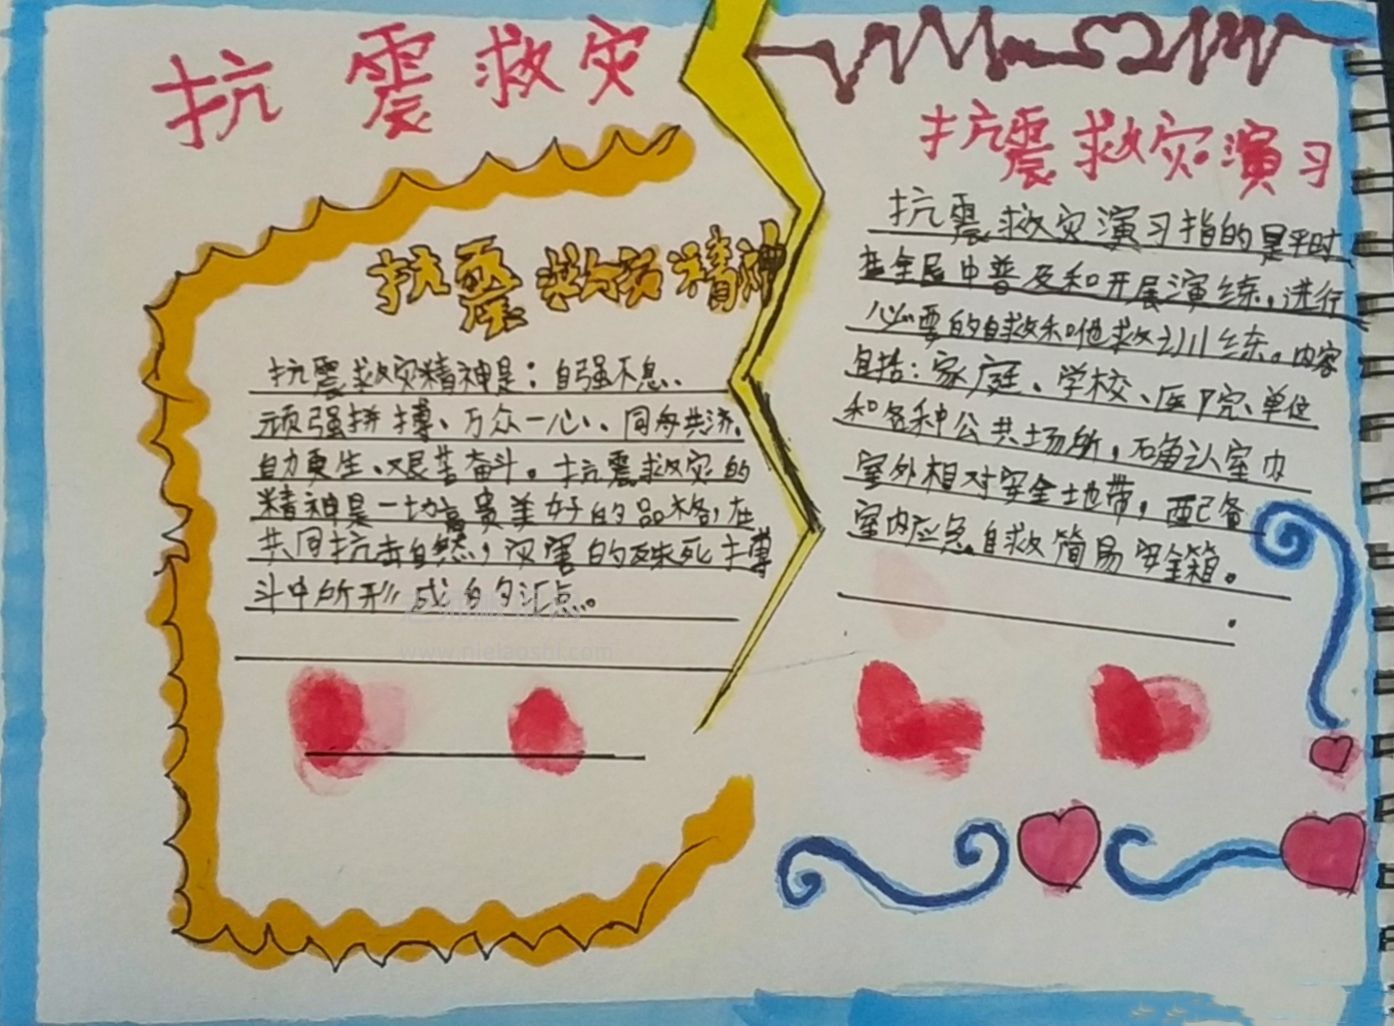 抗震救灾
抗震救灾精神
抗震救灾精神是：自强不息、
顽强拼搏、万众一心、同舟共济、
自力更生、艰苦奋斗。抗震救灾的
精神是一切高贵美好的品格，在
共同抗击自然，灾害的殊死搏
斗中所形成的汇点。
www.nielaoshi.com
抗震救灾演习
抗震救灾演习指的是平时
在全民中普及和开展演练，进行
必要的自救和他救训练。内容
包括：家庭、学校、医院、单位
和各种公共场所，确认室内
室外相对安全地带，配备
室内应急自救简易安全箱。